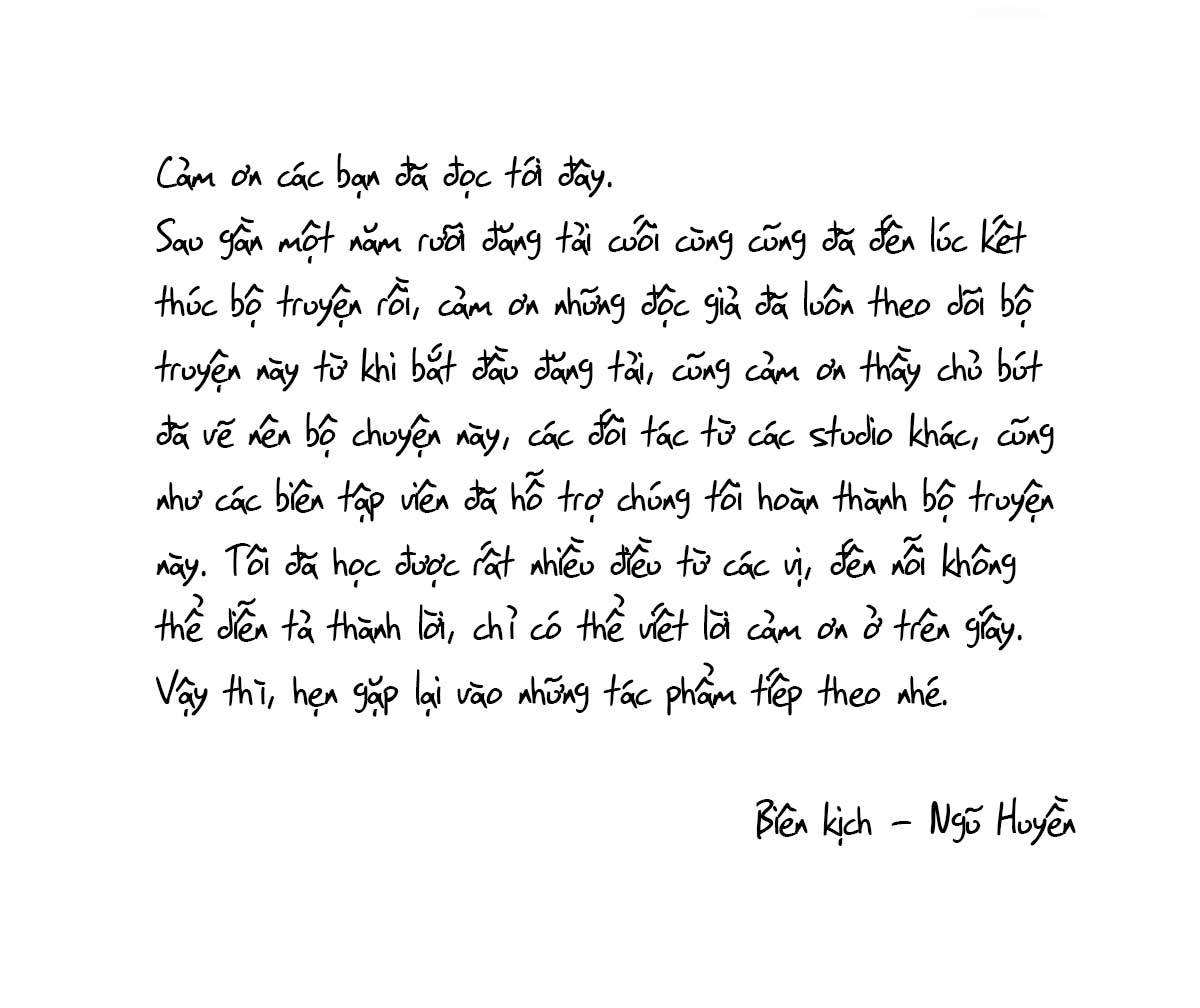 Cảm ơn các bạn đã đọc tới đây.
Sau gần một năm rưỡi đăng tải cuối cùng cũng đã đến lúc kết
thúc bộ truyện rồi, cảm ơn những độc giả đã luôn theo dõi bộ
truyện này từ khi bắt đầu đăng tải, cũng cảm ơn thầy chủ bút
đã vẽ nên bộ chuyện này, các đối tác từ các studio khác, cũng
như các biên tập viên đã hỗ trợ chúng tôi hoàn thành bộ truyện
này. Tôi đã học được rất nhiều điều từ các vị, đến nỗi không
thể diễn tả thành lời, chỉ có thể viết lời cảm ơn ở trên giấy.
Vậy thì, hẹn gặp lại vào những tác phẩm tiếp theo nhé.
Biên kịch – Ngũ Huyền